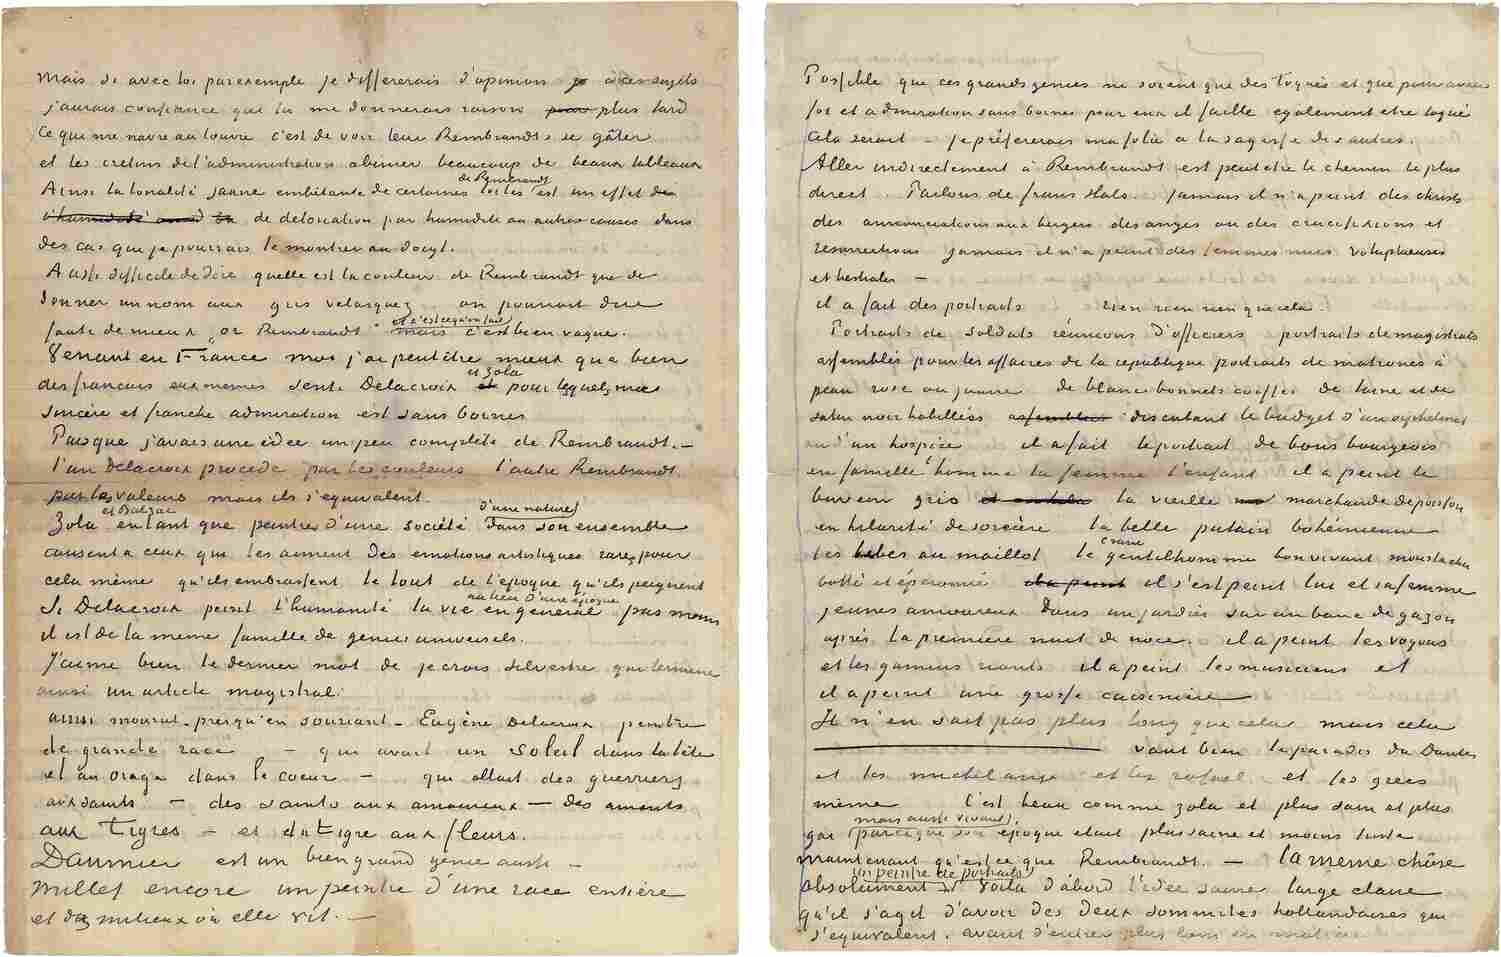 mais si avec toi par exemple je differerais d'opinion à ces sujets
j'aurais confiance que tu me donnerais raison plus tard
Ce qui me navre au louvre c'est de voir leur Rembrandts se gâter
et les cretins de l'administration abimer beaucoup de beaux tableaux
de Rembrandt
Ainsi la tonalité jaune embêtante de certaines toiles est un effet de
l'humidité de détérioration par humidité ou autres causes dans
des cas que je pourrais te montrer au doigt.
Aussi difficile de dire quelle est la couleur de Rembrandt que de
donner un nom aux gris velasquez on pourrait dire
et c'est ce qu'on fait
faute de mieux "or Rembrandt" mais c'est bien vague.
Venant en France moi j'ai peut être mieux que bien
et Zola
des francais eux memes senti Delacroix et pour lequels ma
sincère et franche admiration est sans bornes
Pasque j'avais une idée un peu complète de Rembrandt. —
l'un Delacroix procède par les couleurs l'autre Rembrandt.
par les valeurs mais ils s'equivalent.
et Balzac d'une nature
Zola en tant que peintres d'une société dans son ensemble
causent a ceux qui les aiment des emotions artistiques rares pour
cela même qu'ils embrassent le tout de l'époque qu'ils peignent
au lieu d'une époque
Si Delacroix peint l'humanité la vie en général pas moins
il est de la meme famille de genies universels.
J'aime bien le dernier mot de je crois Silvestre qui termine
ainsi un article magistral:
ainsi mourut – presqu'en souriant – Eugène Delacroix peintre
de grande race – qui avait un soleil dans la tête
et un orage dans le coeur – qui allait des guerriers
aux saints – des saints aux amoureux – des amants
aux Tigres – et du Tigre aux fleurs.
Daumier est un bien grand génie aussi –
Millet encore un peintre d'une race entière
et des milieux où elle vit. —
Possible que ces grands genies ne soient que des toqués et que pour avoir
foi et admiration sans bornes pour eux il faille également etre toqué
Cela serait – je préfererais ma folie a la sagesse des autres.
Aller indirectement à Rembrandt est peut etre le chemin le plus
direct. Parlons de frans Hals. Jamais il n'a peint des christs
des annonciations aux bergers des anges ou des crucifixions et
resurrections jamais il n'a peint des femmes nues voluptueuses
et bestiales –
il a fait des portraits rien rien rien que cela.
Portraits de soldats réunions d'officiers portraits de magistrats
assemblés pour les affaires de la republique portraits de matrones à
peau rose ou jaune de blancs bonnets coiffés de laine et de
satin noir habillées assemblées discutant le budget d'un orphelinat
ou d'un hospice il a fait le portrait de bons bourgeois
en famille l'homme la femme l'enfant il a peint le
buveur gris la vieille marchande de poisson
en hilarité de sorcière la belle putain bohémienne
crane
les bébés au maillot le gentilhomme bon vivant moustachu
botté et éperonné il a peint il s'est peint lui et sa femme
jeunes amoureux dans un jardin sur un banc de gazon
après la premiere nuit de noce. il a peint les voyous
et les gamins riants il a peint les musiciens et
il a peint une grosse cuisinière
Il n'en sait pas plus long que cela mais cela
vaut bien le paradis du Dante
et les michel ange et les rafael et les grecs
meme C'est beau comme Zola et plus sain et plus
mais aussi vivant,
gai parceque son époque etait plus saine et moins triste
maintenant qu'est ce que Rembrandt. — la meme chôse
un peintre de portraits
absolument Voila d'abord l'idée saine large claire
qu'il s'agit d'avoir des deux sommites hollandaises qui
s'equivalent. avant d'entrer plus loin en matière